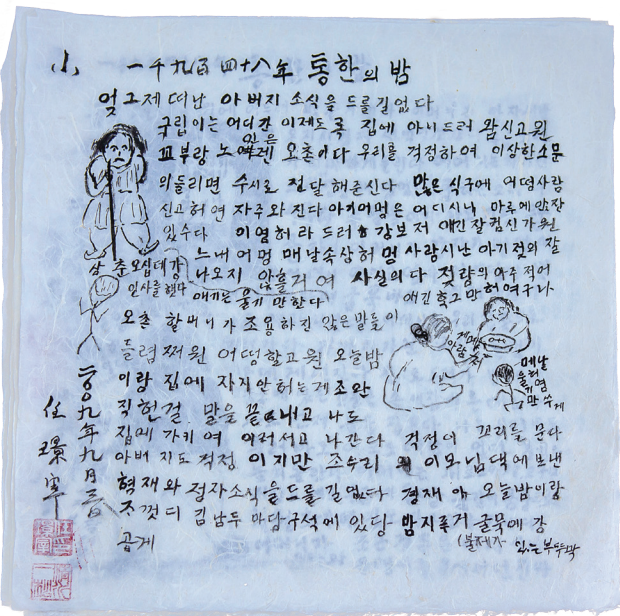 小 一千九百四十八年 통한의 밤
엊그제 떠난 아버지 소식을 드를길 없다
구림이는 어디간 이제도록 집에 아니드러 왐신고원
교부랑 노안은 오촌이다 우리를 걱정하여 이상한소문
의들리면 수시로 전달해준신다 많은 식구에 어멍사랑
신고허연 자주와 진다 아기어멍은 어디시닉 마루에 안잔
있수다 이염허라 드러 강보저 애긴잘컴신가원
느내 어멍 매날속상허멍 사람시난 아기젖의 잘
나오지 않을거여 사실의다 젖량의 아주적어
애기는 울기만한다 애긴 훅그만허여구나
삼춘오십데강
인사를했다
오촌 할머니가 조용하진 않은말들이
들렴쩌원 어떵할고원 오늘밤
이랑 집에 자지안허는게 조완
직헌걸 말을 끝내고 나도
집에 가키여 이러서고 나간다 걱정이 꼬리를 문다
아버지도 걱정이지만 조수리 이모님댁에 보낸
형재와 절자소식을 드를길없다 경재야 오늘밤이랑
조껏디 김남두 마당구석에 있당 밤지푸거 굴묵에 강
곱게 (불제가 있는부뚜막
제메
아람쩌
메날
울허
기염
만수게
二00九年九月三日
任璟宰